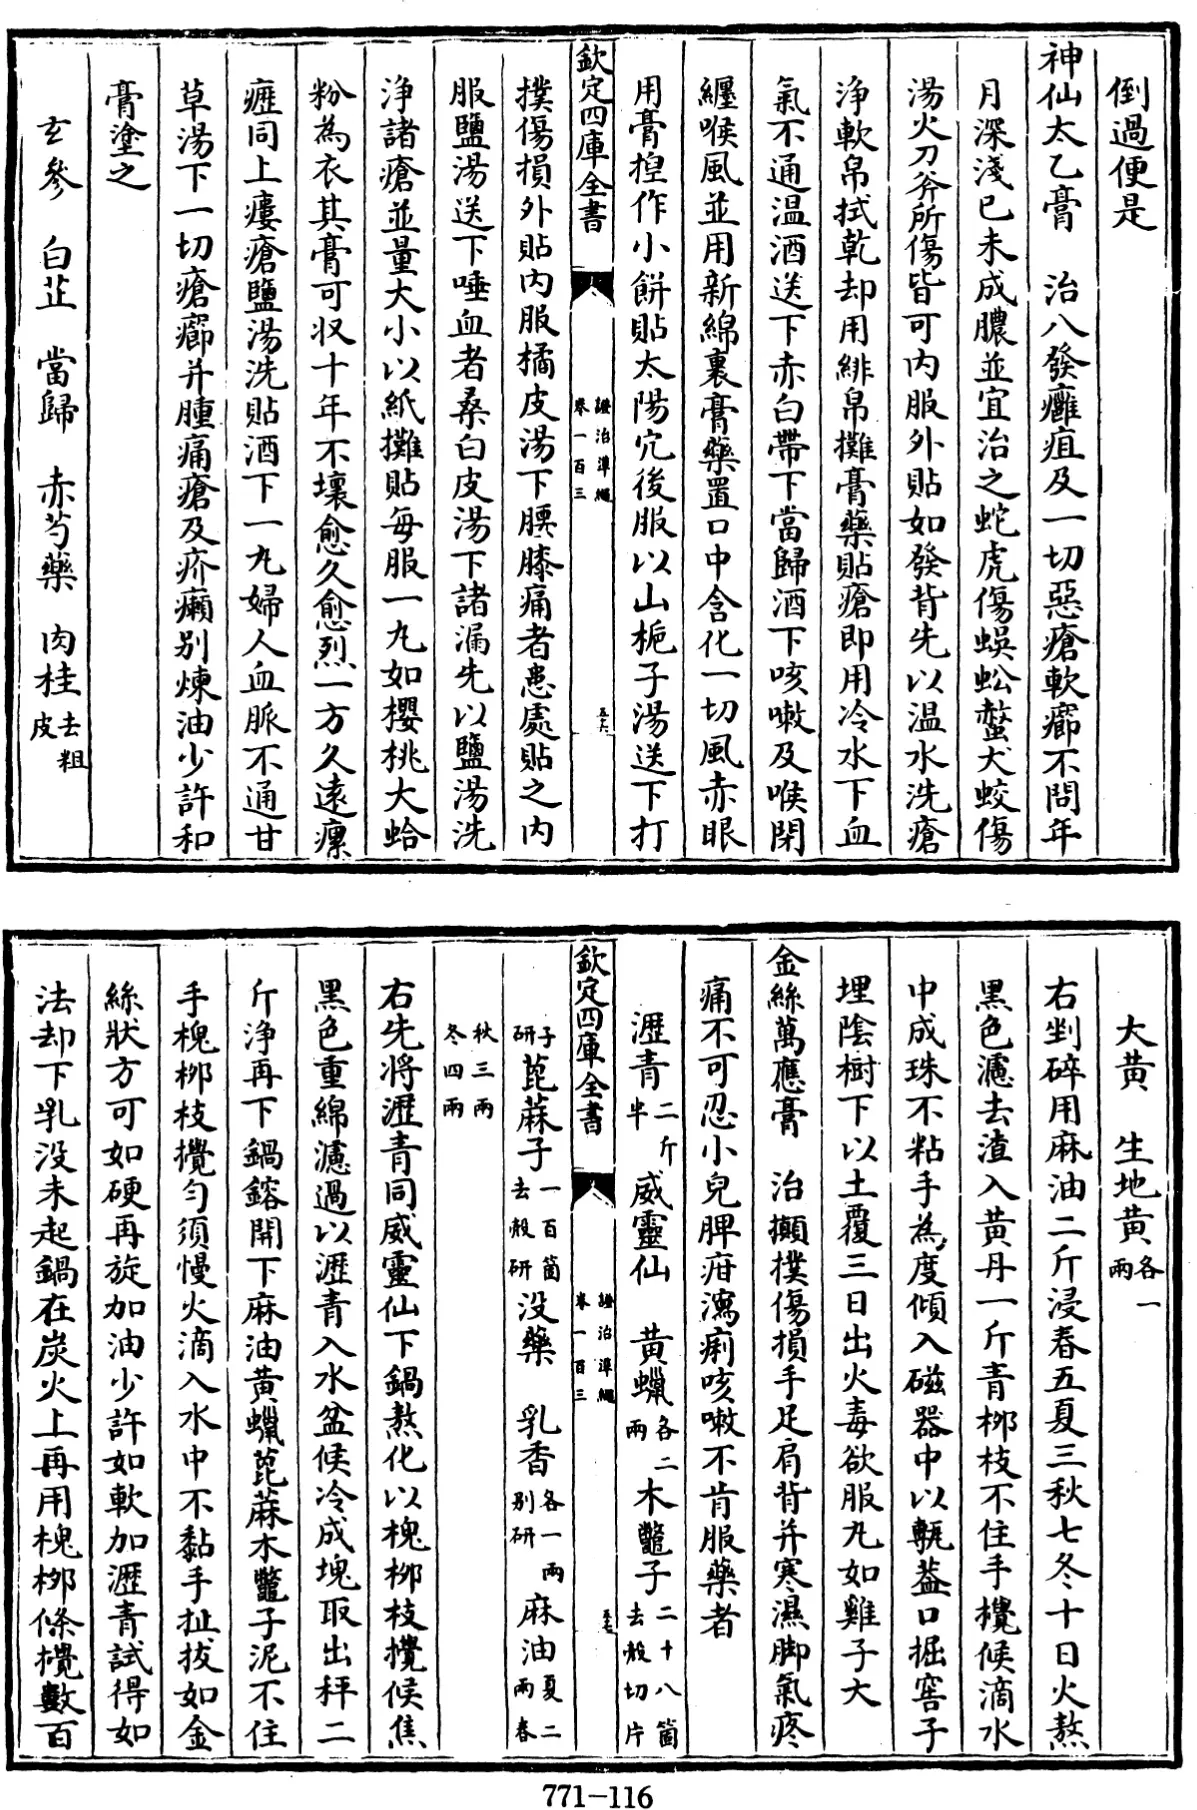 倒過便是
神仙太乙膏　治八發癰疽及一切惡瘡軟癤不問年
月深淺已未成膿並宜治之蛇虎傷蜈蚣螫犬蛟傷
湯火刀斧所傷皆可内服外貼如發背先以温水洗瘡
浄軟帛拭乾却用緋帛攤膏藥貼瘡即用冷水下血
氣不通温酒送下赤白帶下當歸酒下咳嗽及喉閉
纒喉風並用新綿裹膏藥置口中含化一切風赤眼
用膏揑作小餅貼太陽穴後服以山梔子湯送下打
欽定四庫全書
證治準繩
卷一百三
五六
撲傷損外貼内服橘皮湯下腰膝痛者患處貼之内
服鹽湯送下唾血者桑白皮湯下諸漏先以鹽湯洗
浄諸瘡並量大小以紙攤貼每服一丸如櫻桃大蛤
粉為衣其膏可収十年不壞愈久愈烈一方久遠瘰
癧同上瘻瘡鹽湯洗貼酒下一丸婦人血脈不通甘
草湯下一切瘡癤并腫痛瘡及疥癩别煉油少許和
膏塗之
玄參　白芷　當歸　赤芍藥　肉桂去粗皮
大黄　生地黄各一兩
右剉碎用麻油二斤浸春五夏三秋七冬十日火熬
黑色濾去渣入黄丹一斤青栁枝不住手攪候滴水
中成珠不粘手為度傾入磁器中以甎葢口掘窖子
埋隂樹下以土覆三日出火毒欲服丸如雞子大
金絲萬應膏　治攧撲傷損手足肩背并寒濕脚氣疼
痛不可忍小兒脾疳瀉痢咳嗽不肯服藥者
瀝青二斤半　威靈仙　黄蠟各二兩　木鼈子二十八箇去殻切片
欽定四庫全書
證治準繩
卷一百三
五七
子研　蓖麻子一百箇去殻研　没藥　乳香各一兩别研　麻油夏二兩春
秋三兩冬四兩
右先將瀝青同威靈仙下鍋熬化以槐栁枝攪候焦
黑色重綿濾過以瀝青入水盆候冷成塊取出秤二
斤浄再下鍋鎔開下麻油黄蠟蓖蔴木鼈子泥不住
手槐栁枝攪匀須慢火滴入水中不黏手扯拔如金
絲狀方可如硬再旋加油少許如軟加瀝青試得如
法却下乳没末起鍋在炭火上再用槐栁條攪數百
771-116